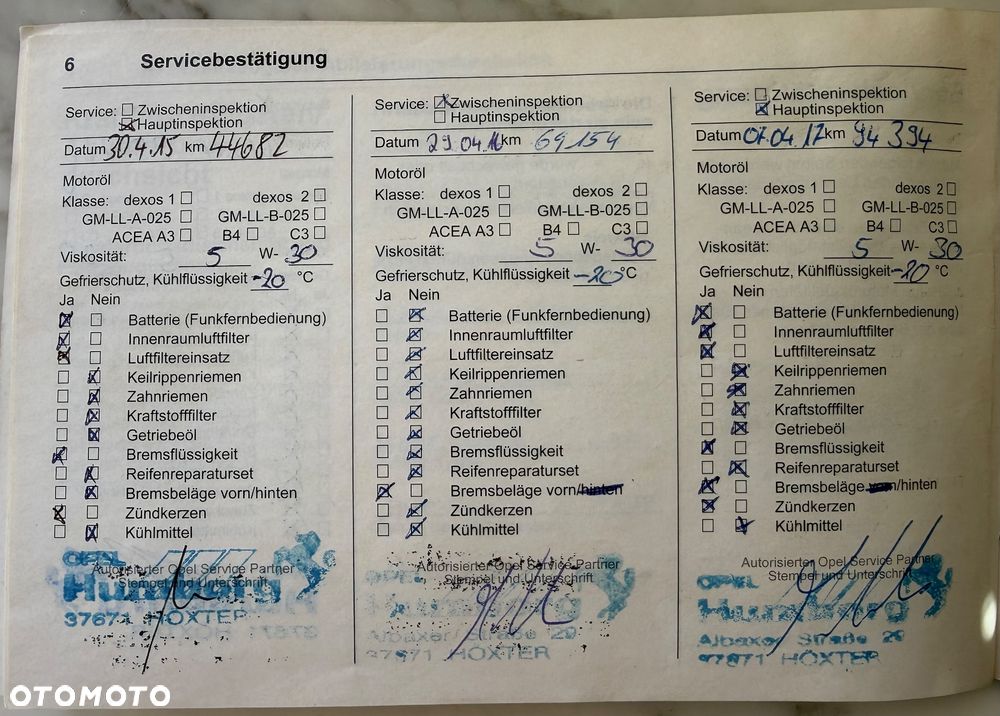 6 Servicebestätigung
Service: Zwischeninspektion
Hauptinspektion
Datum 30.4.15 km 44682
Motoröl
Klasse: dexos 1 dexos 2
GM-LL-A-025 GM-LL-B-025
ACEA A3 B4 C3
Viskosität: 5 W- 30
Gefrierschutz, Kühlflüssigkeit -20 °C
Ja Nein
Batterie (Funkfernbedienung)
Innenraumluftfilter
Luftfiltereinsatz
Keilrippenriemen
Zahnriemen
Kraftstofffilter
Getriebeöl
Bremsflüssigkeit
Reifenreparaturset
Bremsbeläge vorn/hinten
Zündkerzen
Kühlmittel
Autorisierter Opel Service Partner
Stempel und Unterschrift
OPEL
Humburg
37671 HÖXTER
Service: Zwischeninspektion
Hauptinspektion
Datum 29.04.16 km 69154
Motoröl
Klasse: dexos 1 dexos 2
GM-LL-A-025 GM-LL-B-025
ACEA A3 B4 C3
Viskosität: 5 W- 30
Gefrierschutz, Kühlflüssigkeit -20 °C
Ja Nein
Batterie (Funkfernbedienung)
Innenraumluftfilter
Luftfiltereinsatz
Keilrippenriemen
Zahnriemen
Kraftstofffilter
Getriebeöl
Bremsflüssigkeit
Reifenreparaturset
Bremsbeläge vorn/hinten
Zündkerzen
Kühlmittel
Autorisierter Opel Service Partner
Stempel und Unterschrift
OPEL
Humburg
Albaxer Straße 29
37671 HÖXTER
Service: Zwischeninspektion
Hauptinspektion
Datum 07.04.17 km 94394
Motoröl
Klasse: dexos 1 dexos 2
GM-LL-A-025 GM-LL-B-025
ACEA A3 B4 C3
Viskosität: 5 W- 30
Gefrierschutz, Kühlflüssigkeit -20 °C
Ja Nein
Batterie (Funkfernbedienung)
Innenraumluftfilter
Luftfiltereinsatz
Keilrippenriemen
Zahnriemen
Kraftstofffilter
Getriebeöl
Bremsflüssigkeit
Reifenreparaturset
Bremsbeläge vorn/hinten
Zündkerzen
Kühlmittel
Autorisierter Opel Service Partner
Stempel und Unterschrift
OPEL
Humburg
Albaxer Straße 29
37671 HÖXTER
OTOMOTO